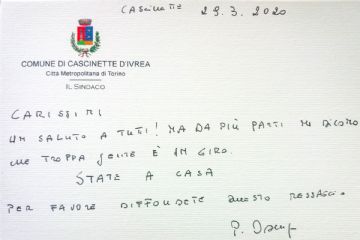 Cascinette 29.3.2020
COMUNE DI CASCINETTE D'IVREA
Città Metropolitana di Torino
IL SINDACO
CARISSIMI
UN SALUTO A TUTTI! MA DA PIÙ PARTI MI DICONO
CHE TROPPA GENTE È IN GIRO.
STATE A CASA
PER FAVORE DIFFONDETE QUESTO MESSAGGIO
P.